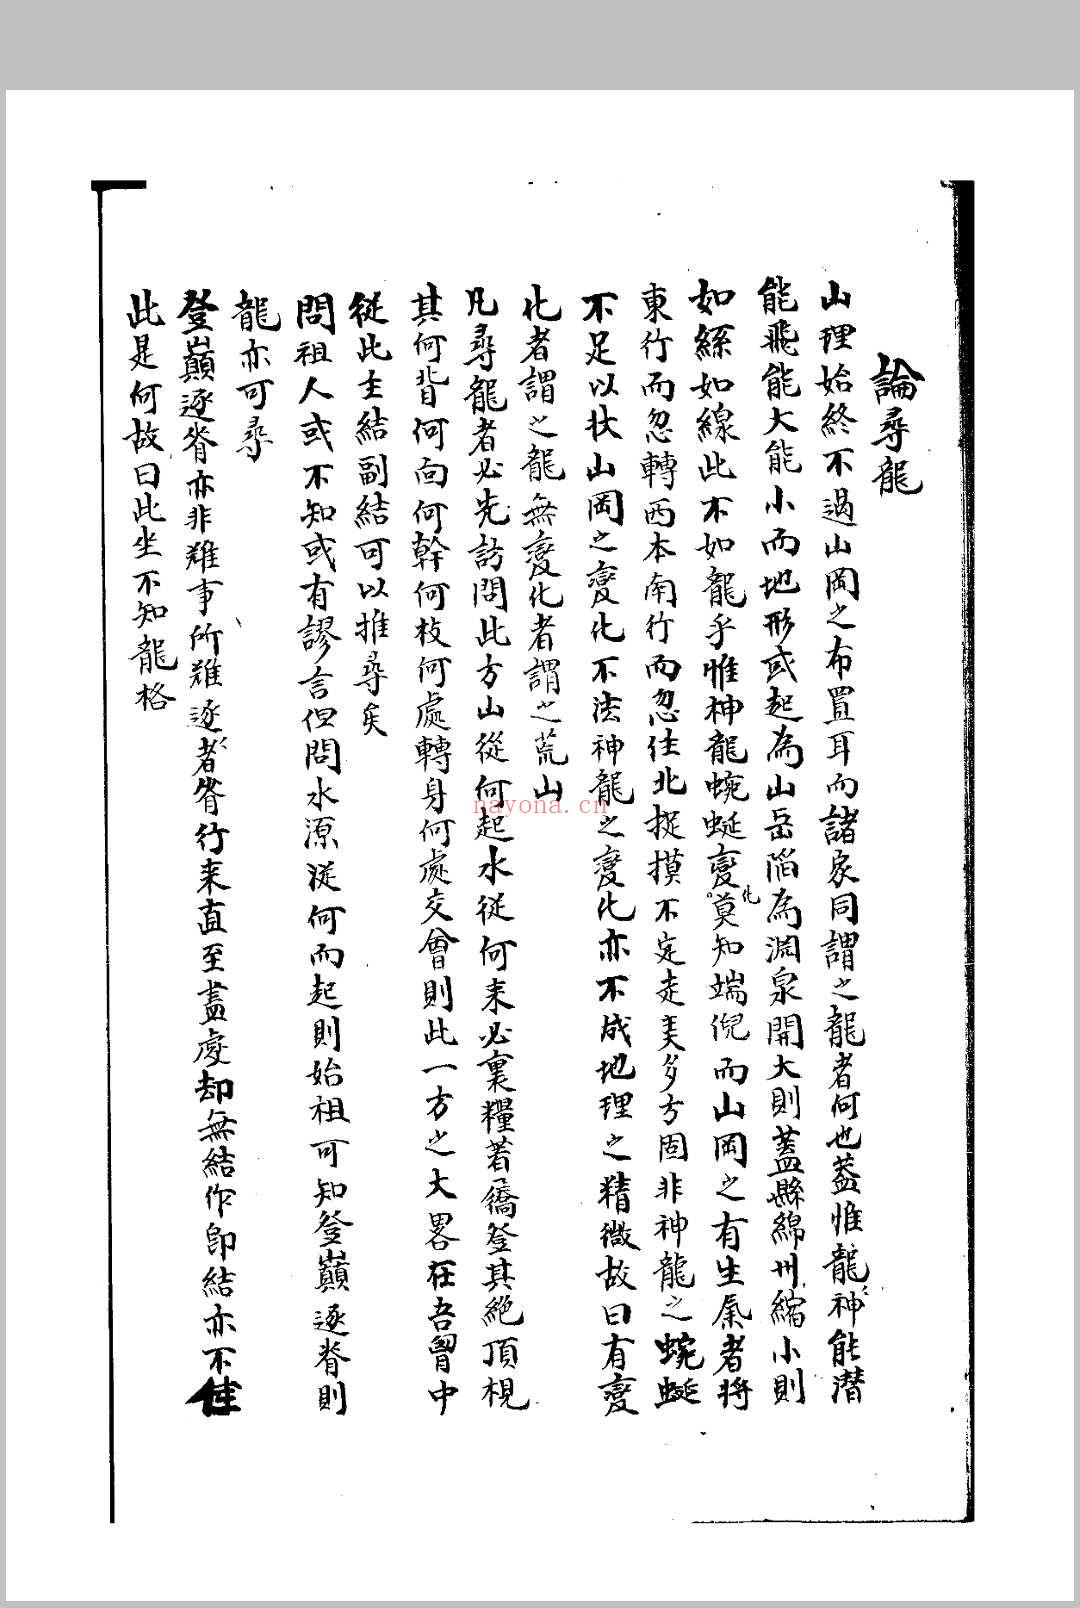 論尋龍
山理始終不過山岡之布置耳而諸家同謂之龍者何也蓋惟龍神能潛
能飛能大能小而地形或起為山岳陷為淵泉開大則蓋縣綿州縮小則
如絲如線此不如龍乎惟神龍蜿蜒變化莫知端倪而山岡之有生氣者將
東行而忽轉西本南行而忽往北捉摸不定走美多方固非神龍之蜿蜒
不足以状山岡之變化不法神龍之變化亦不成地理之精微故曰有變
化者謂之龍無變化者謂之荒山
凡尋龍者必先訪問此方山從何起水從何来必裏糧著僑登其絕頂視
其何背何向何幹何枝何處轉身何處交會則此一方之大畧在吾胷中
從此主結副結可以推尋矣
問祖人或不知或有謬言但問水源從何而起則始祖可知登巔逐脊則
龍亦可尋
登巔逐脊亦非難事所難逐者脊行来直至盡處却無結作即結亦不佳
此是何故曰此坐不知龍格
nayona.cn